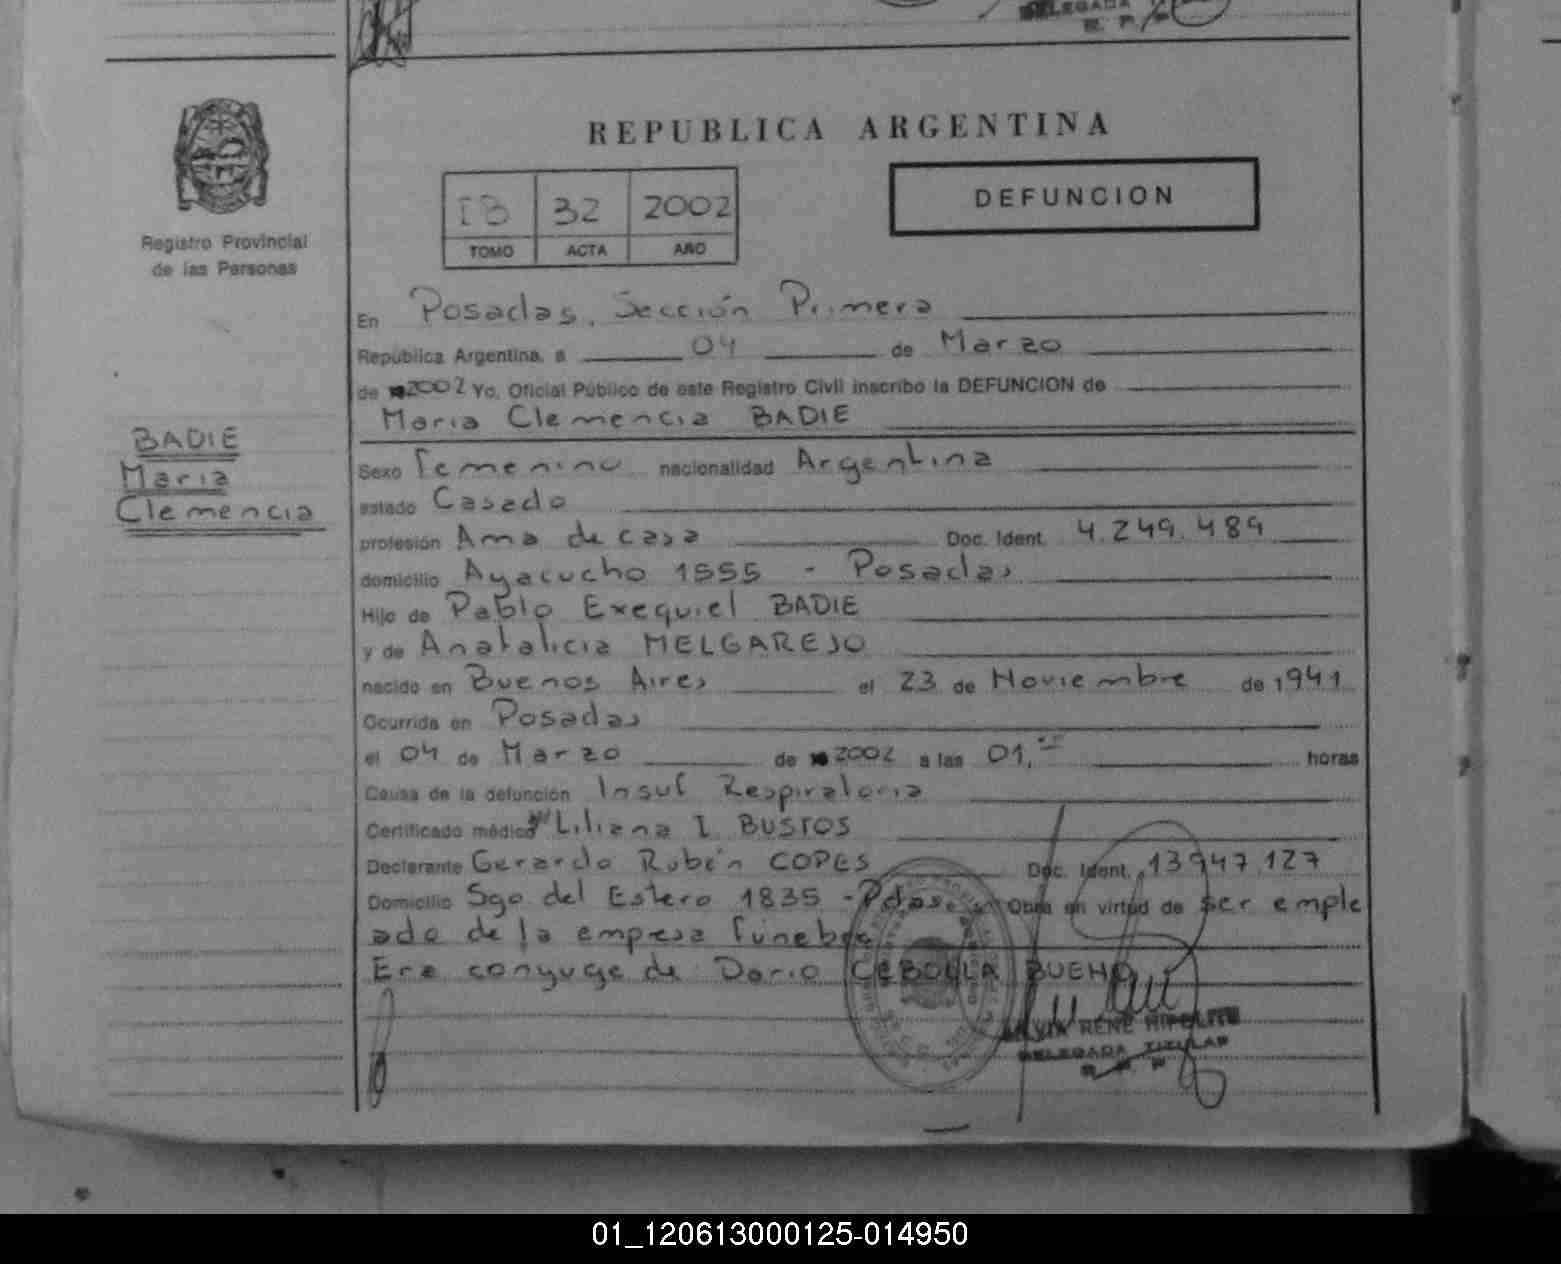 DELEGADA
REPUBLICA ARGENTINA
IB 32 2002
TOMO ACTA AÑO
DEFUNCION
Registro Provincial
de las Personas
BADIE
Maria
Clemencia
En Posadas, Sección Primera
República Argentina, a 04 de Marzo
de 2002 Yo, Oficial Público de este Registro Civil inscribo la DEFUNCION de
Maria Clemencia BADIE
Sexo Femenino nacionalidad Argentina
estado Casado
profesión Ama de casa Doc. Ident. 4.249.489
domicilio Ayacucho 1555 - Posadas
Hijo de Pablo Exequiel BADIE
y de Anatalicia MELGAREJO
nacido en Buenos Aires el 23 de Noviembre de 1941
Ocurrida en Posadas
el 04 de Marzo de 2002 a las 01, horas
Causa de la defunción Insuf Respiratoria
Certificado médico Liliana I. BUSTOS
Declarante Gerardo Rubén COPES Doc. Ident. 13947.127
Domicilio Sgo del Estero 1835 - Pdas. Obra en virtud de ser emple
ado de la empresa fúnebre
Era conyuge de Dario CEBOLLA BUENO
RENE HIPOLITO
DELEGADA TITULAR
01_120613000125-014950